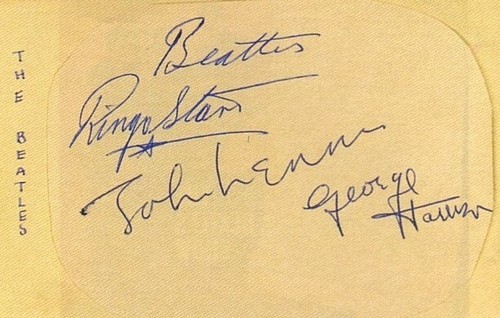 THE BEATLES
Beatles
Ringo Starr
John Lennon
George
Harrison